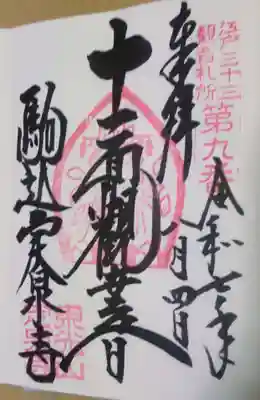 江戸三十三
観音札所
第九番
令和七年
奉拝
八月四日
十一面觀世音
駒込定泉寺